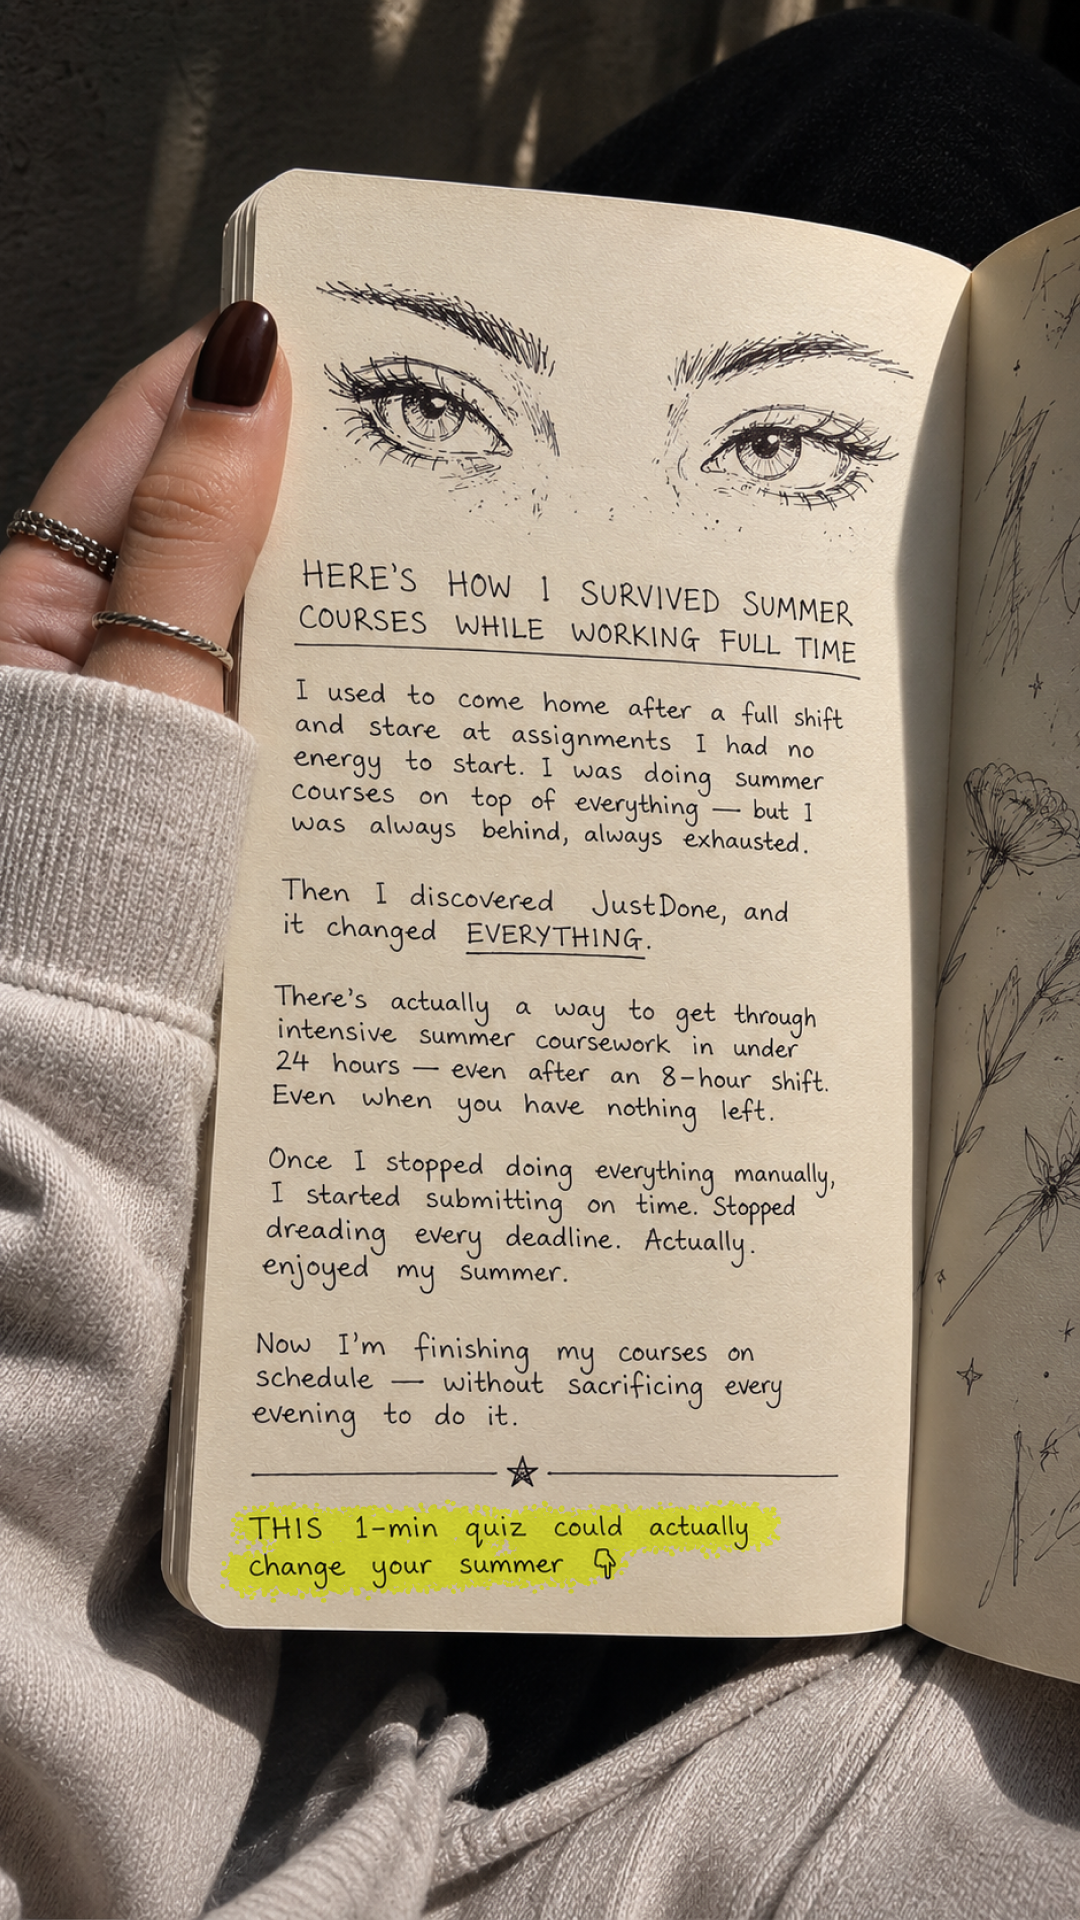 HERE'S HOW I SURVIVED SUMMER
COURSES WHILE WORKING FULL TIME
I used to come home after a full shift
and stare at assignments I had no
energy to start. I was doing summer
courses on top of everything — but I
was always behind, always exhausted.
Then I discovered JustDone, and
it changed EVERYTHING.
There's actually a way to get through
intensive summer coursework in under
24 hours — even after an 8-hour shift.
Even when you have nothing left.
Once I stopped doing everything manually,
I started submitting on time. Stopped
dreading every deadline. Actually.
enjoyed my summer.
Now I'm finishing my courses on
schedule — without sacrificing every
evening to do it.
THIS 1-min quiz could actually
change your summer 👇